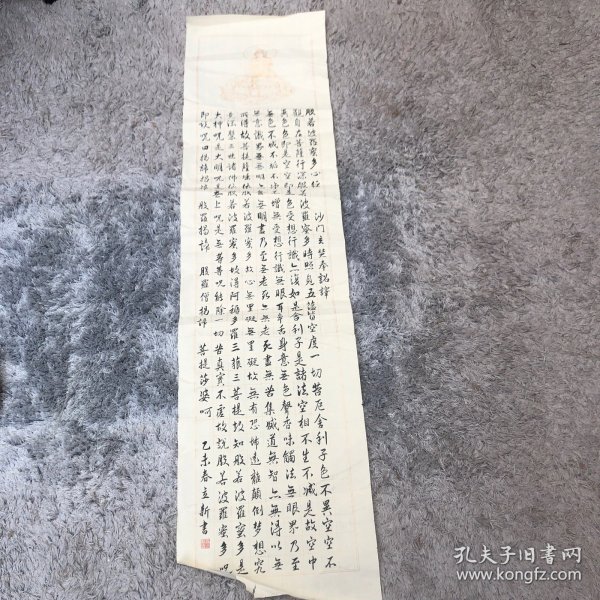 般若波羅蜜多心經 沙门玄奘奉詔譯
觀自在菩薩行深般若波羅蜜多時照見五蘊皆空度一切苦厄舍利子色不異空空不
異色色即是空空即是色受想行識亦復如是舍利子是諸法空相不生不滅是故空中
無色不滅不垢不淨不增無受想行識無眼耳鼻舌身意無色聲香味觸法無眼界乃至
無意識界無無明亦無無明盡乃至無老死亦無老死盡無苦集滅道無智亦無得以無
所得故菩提薩埵依般若波羅蜜多故心無罣礙無罣礙故無有恐怖遠離顛倒梦想究
竟涅槃三世諸佛依般若波羅蜜多故得阿耨多羅三藐三菩提故知般若波羅蜜多是
大神咒是大明咒是無上咒是無等等咒能除一切苦真實不虛故說般若波羅蜜多咒
即說咒曰揭諦揭諦 般羅揭諦 般羅僧揭諦 菩提莎婆呵 乙未春立新書
孔夫子旧書网
www.kongfz.com